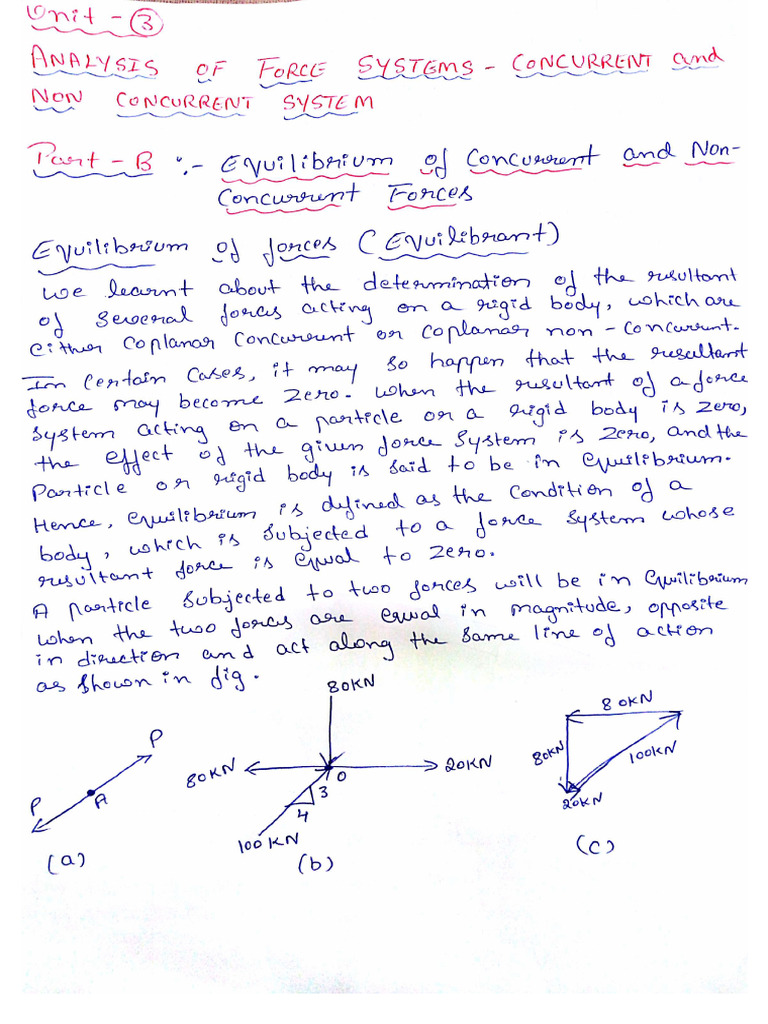 Unit - 3
ANALYSIS OF FORCE SYSTEMS - CONCURRENT and
NON CONCURRENT SYSTEM
Part - B :- Equilibrium of Concurrent and Non-
Concurrent Forces
Equilibrium of forces (Equilibrant)
We learnt about the determination of the resultant
of several forces acting on a rigid body, which are
either coplanar concurrent or coplanar non-concurrent.
In certain cases, it may so happen that the resultant
force may become zero. When the resultant of a force
system acting on a particle or a rigid body is zero,
the effect of the given force system is zero, and the
particle or rigid body is said to be in equilibrium.
Hence, equilibrium is defined as the condition of a
body, which is subjected to a force system whose
resultant force is equal to zero.
A particle subjected to two forces will be in equilibrium
when the two forces are equal in magnitude, opposite
in direction and act along the same line of action
as shown in fig.
80KN
80KN
P
80KN
O
20KN
80KN
100KN
3
P
A
4
20KN
100KN
(a)
(b)
(c)